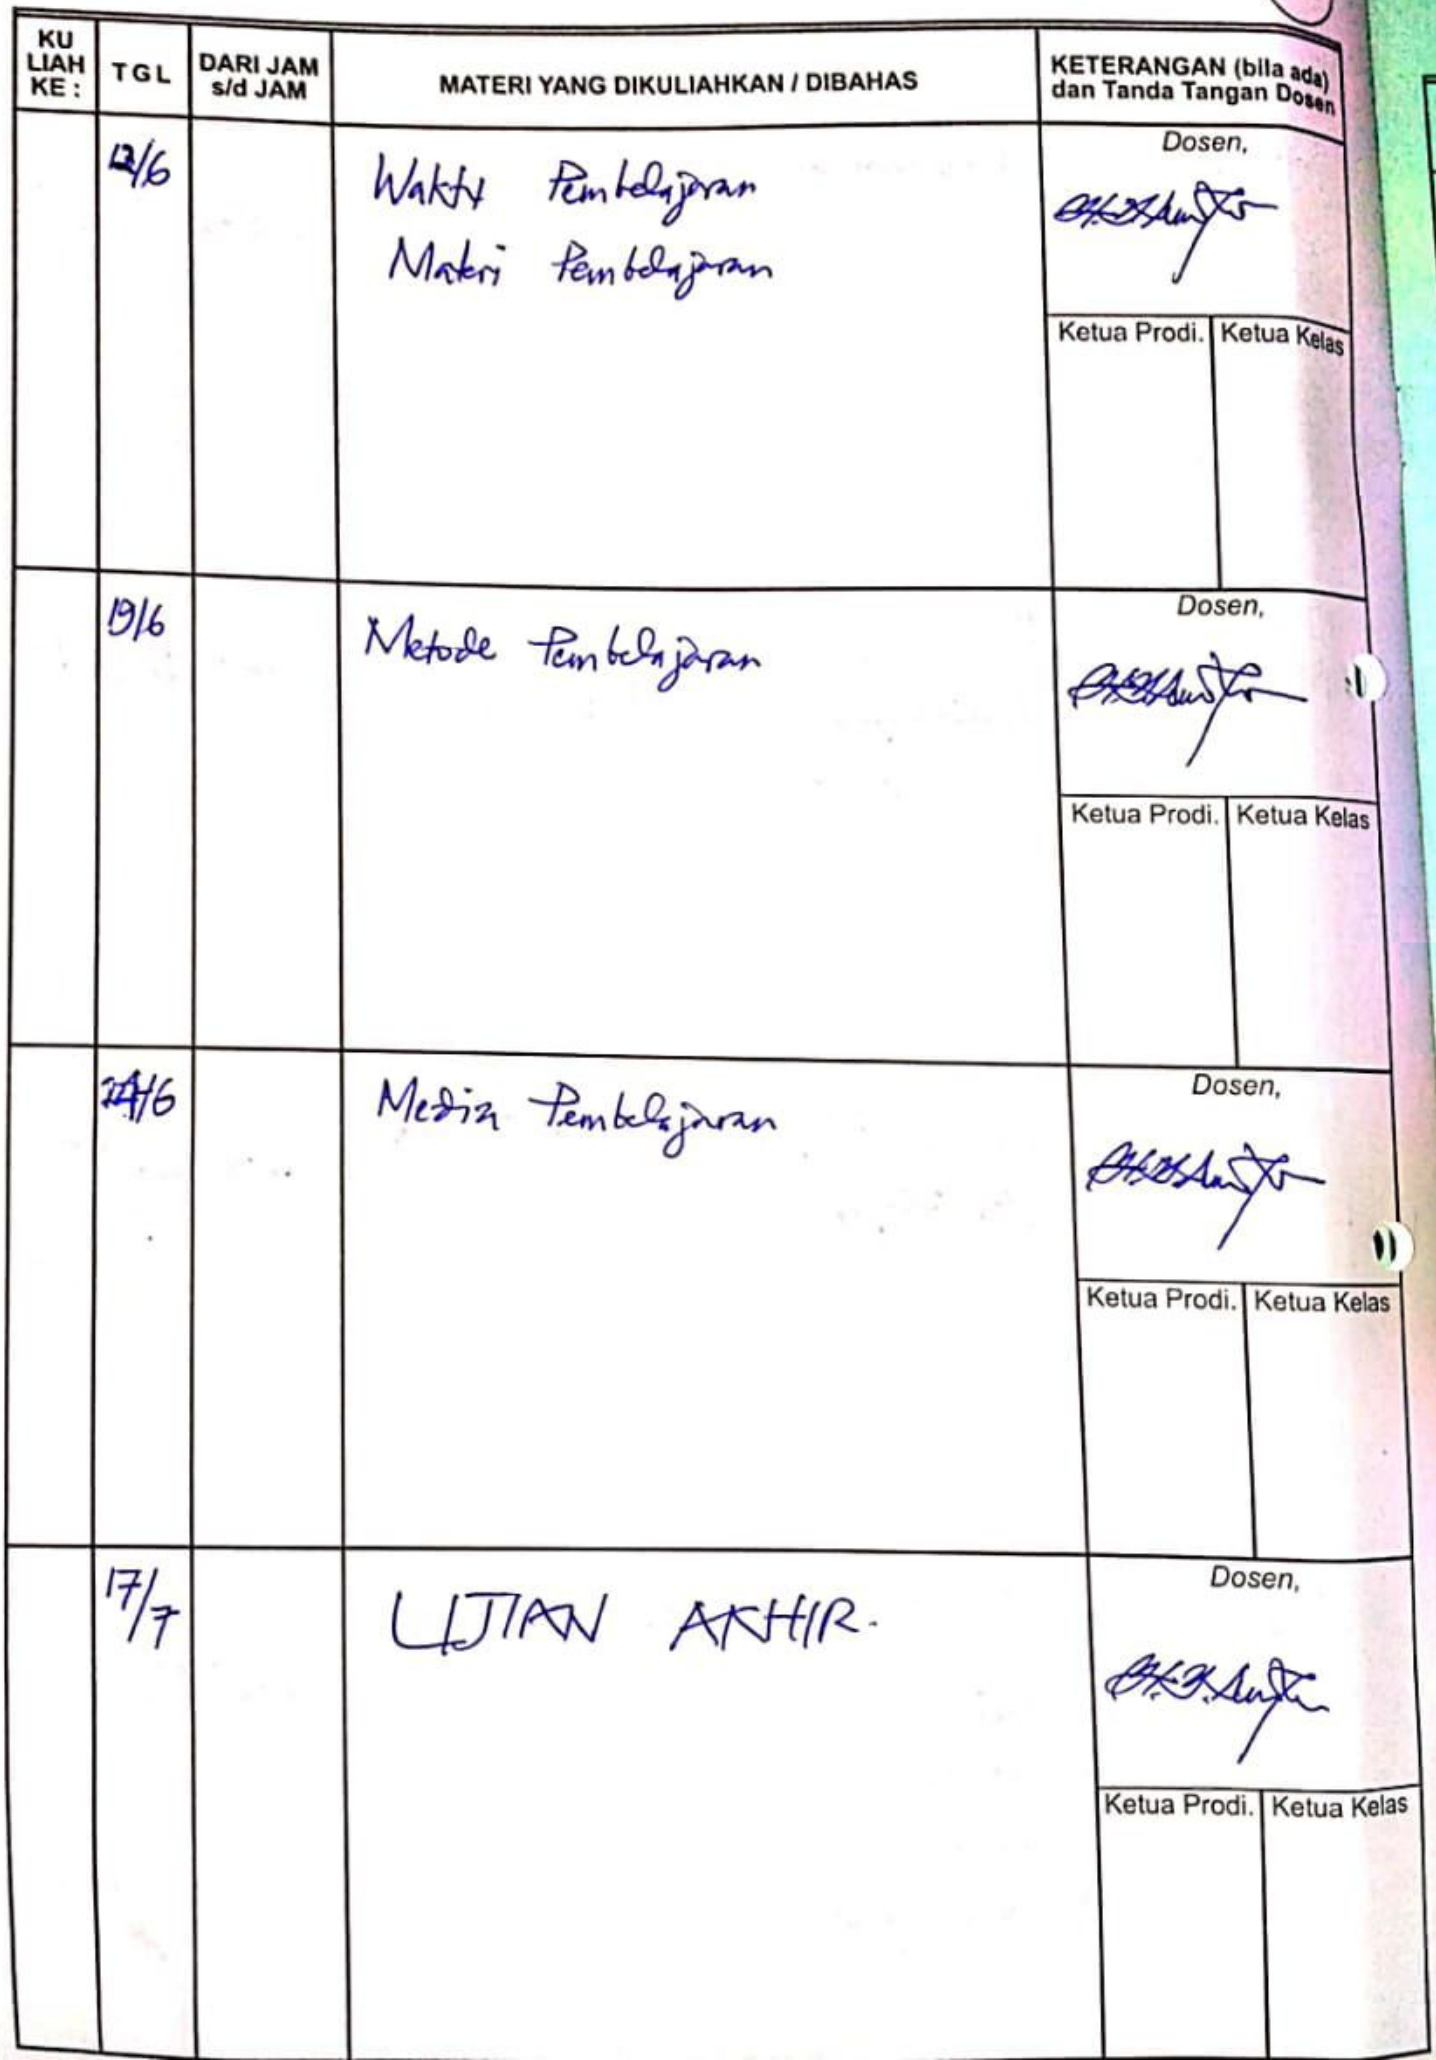 KU LIAH KE :
TGL
DARI JAM s/d JAM
MATERI YANG DIKULIAHKAN / DIBAHAS
KETERANGAN (bila ada) dan Tanda Tangan Dosen
12/6
Waktu Pembelajaran
Materi Pembelajaran
Dosen,
Ketua Prodi.
Ketua Kelas
19/6
Metode Pembelajaran
Dosen,
Ketua Prodi.
Ketua Kelas
Media Pembelajaran
Dosen,
Ketua Prodi.
Ketua Kelas
17/7
UJIAN AKHIR.
Dosen,
Ketua Prodi.
Ketua Kelas